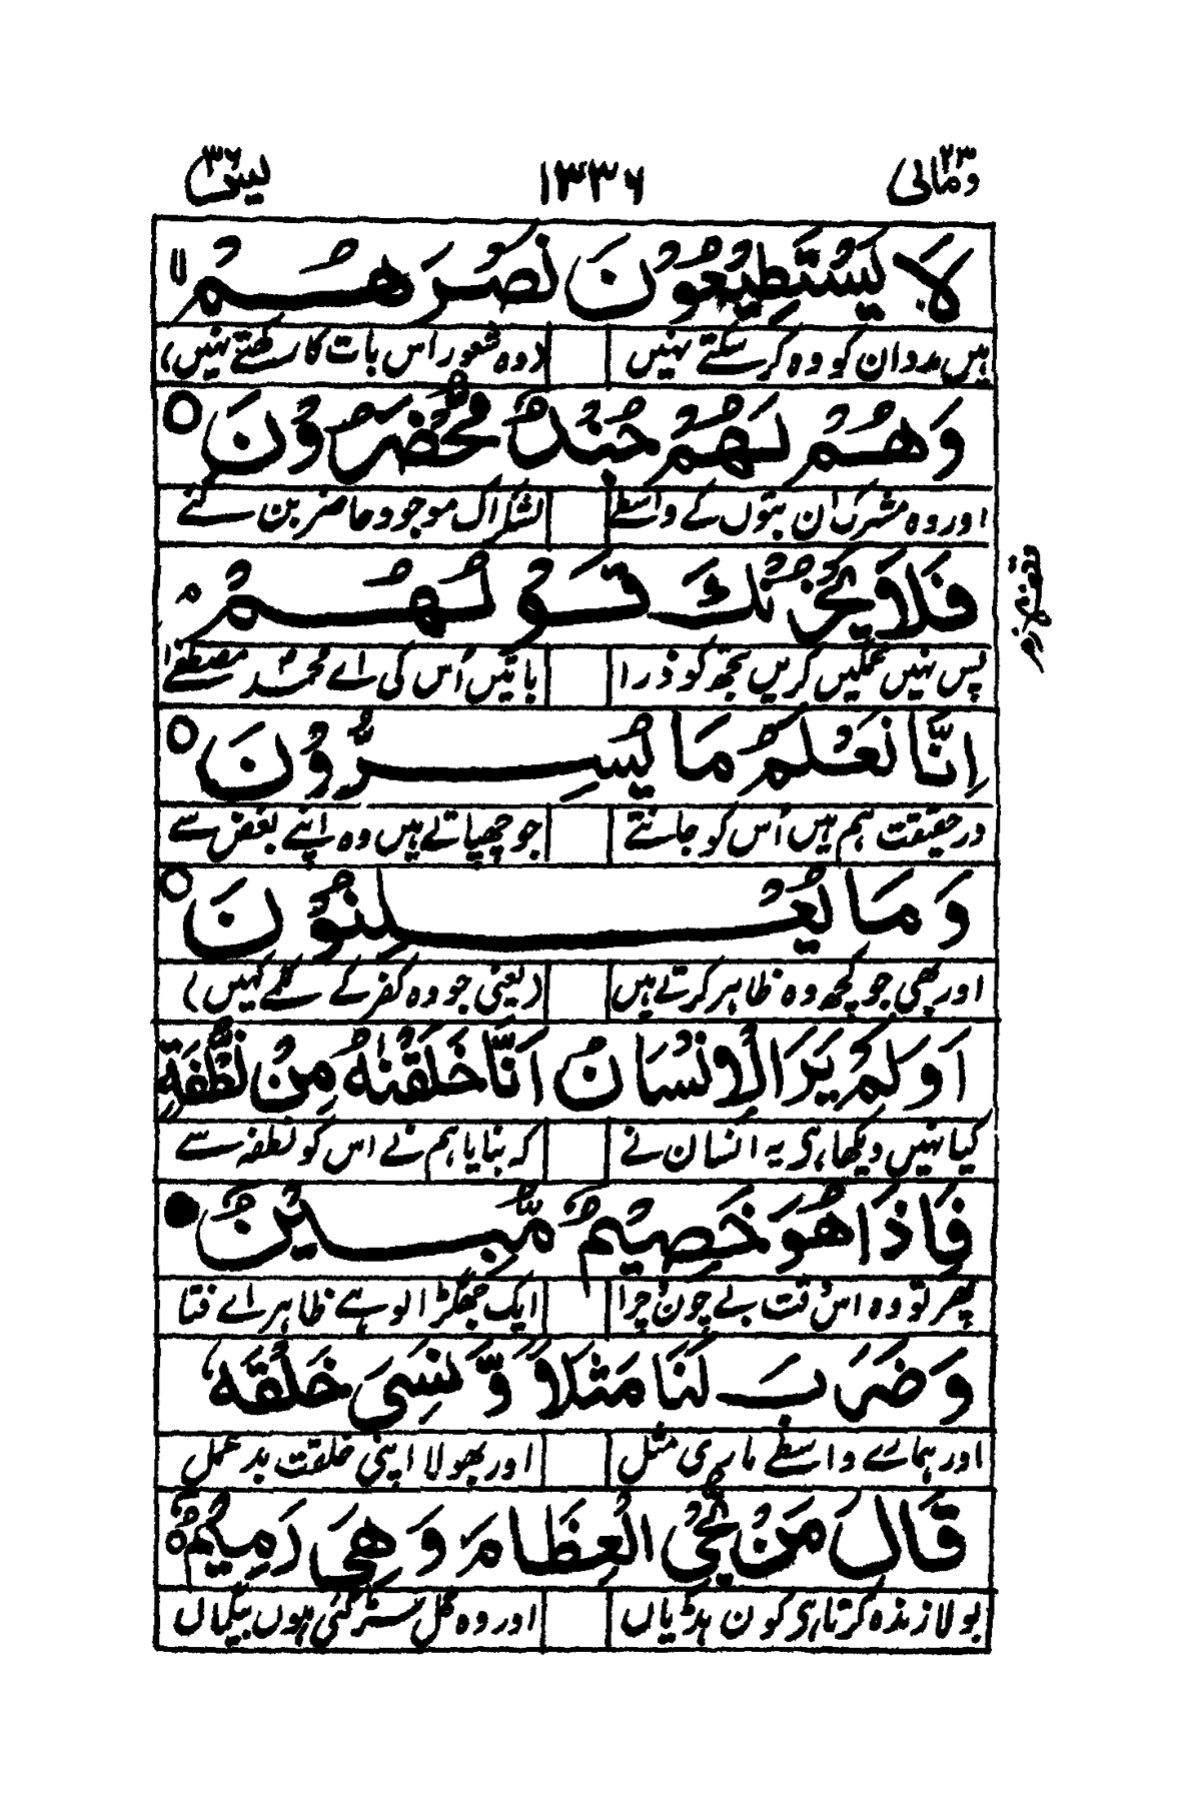 ومالی ۲۳ ۱۳۳۶ یٰسٓ ۳۶
لَا يَسْتَطِيْعُوْنَ نَصْرَهُمْ ۙ
ہیں مدد ان کو وہ کر سکتے نہیں (وہ شعور اس بات کا رکھتے نہیں)
وَهُمْ لَهُمْ جُنْدٌ مُّحْضَرُوْنَ ○
اور وہ مشرک ان بتوں کے واسطے لشکر اک موجود حاضر بن گئے
فَلَا يَحْزُنْكَ قَوْلُهُمْ ۘ
پس نہیں غمگیں کریں تجھ کو ذرا باتیں اُس کی اے محمدؐ مصطفےٰ
وقف لازم
اِنَّا نَعْلَمُ مَا يُسِرُّوْنَ ○
در حقیقت ہم ہیں اُس کو جانتے جو چھپاتے ہیں وہ اپنے بغض سے
وَمَا يُعْلِنُوْنَ ○
اور بھی جو کچھ وہ ظاہر کرتے ہیں (یعنی جو وہ کفر کے کلمے کہیں)
اَوَلَمْ يَرَ الْاِنْسَانُ اَنَّا خَلَقْنٰهُ مِنْ نُّطْفَةٍ
کیا نہیں دیکھا ہی یہ انسان نے کہ بنایا ہم نے اس کو نطفہ سے
فَاِذَا هُوَ خَصِيْمٌ مُّبِيْنٌ ●
پھر تو وہ اس قت بے چون چرا ایک جھگڑالو ہے ظاہر اے فتا
وَضَرَبَ لَنَا مَثَلًا وَّنَسِيَ خَلْقَهٗ ؕ
اور ہمارے واسطے ماری مثل اور بھولا اپنی خلقت بد عمل
قَالَ مَنْ يُّحْيِ الْعِظَامَ وَهِيَ رَمِيْمٌ ○
بولا زندہ کرتا ہی کون ہڈیاں اور وہ گل سڑ گئی ہوں بیگماں